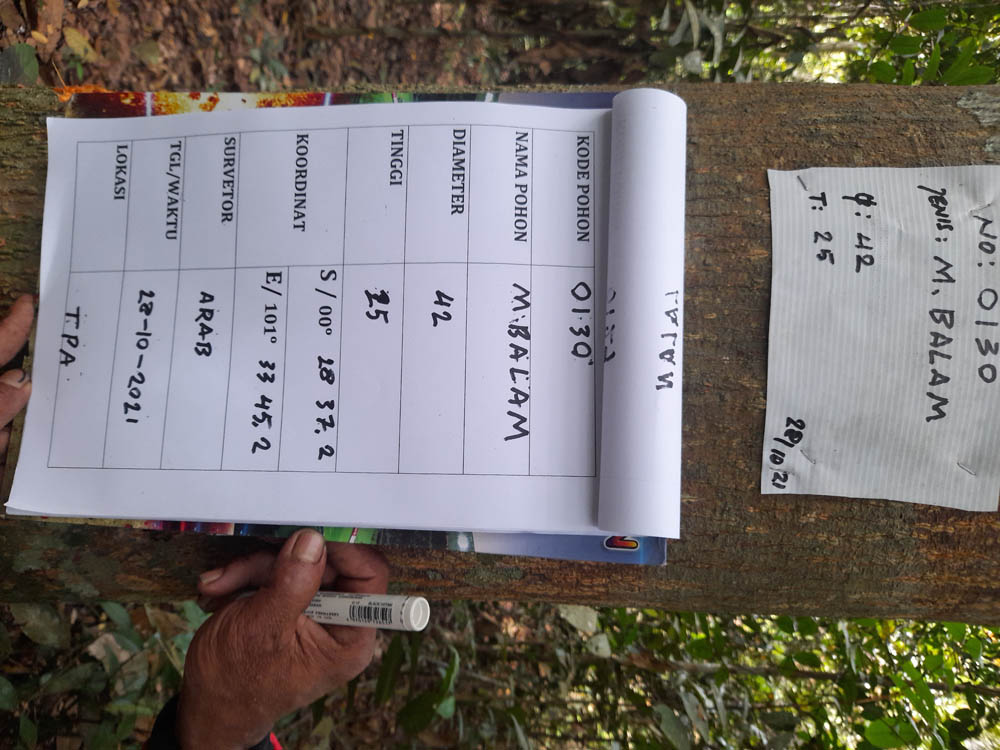 NO: 0130
JENIS: M. BALAM
φ: 42
T: 25
28/10 21
KODE POHON 0130
NAMA POHON M.BALAM
DIAMETER 42
TINGGI 25
KOORDINAT S / 00° 28 37.2
E/ 101° 33 45.2
SURVETOR ARAB
TGL/WAKTU 28-10-2021
LOKASI T.PA